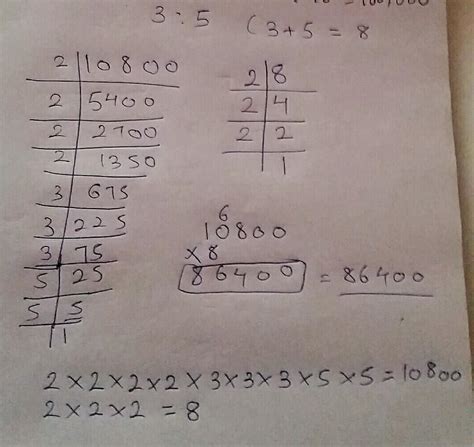 3 : 5 (3+5 = 8
2 | 10800
2 | 5400
2 | 2700
2 | 1350
3 | 675
3 | 225
3 | 75
5 | 25
5 | 5
1
2 | 8
2 | 4
2 | 2
1
6
10800
×8
86400 = 86400
2×2×2×2×3×3×3×5×5=10800
2×2×2 = 8